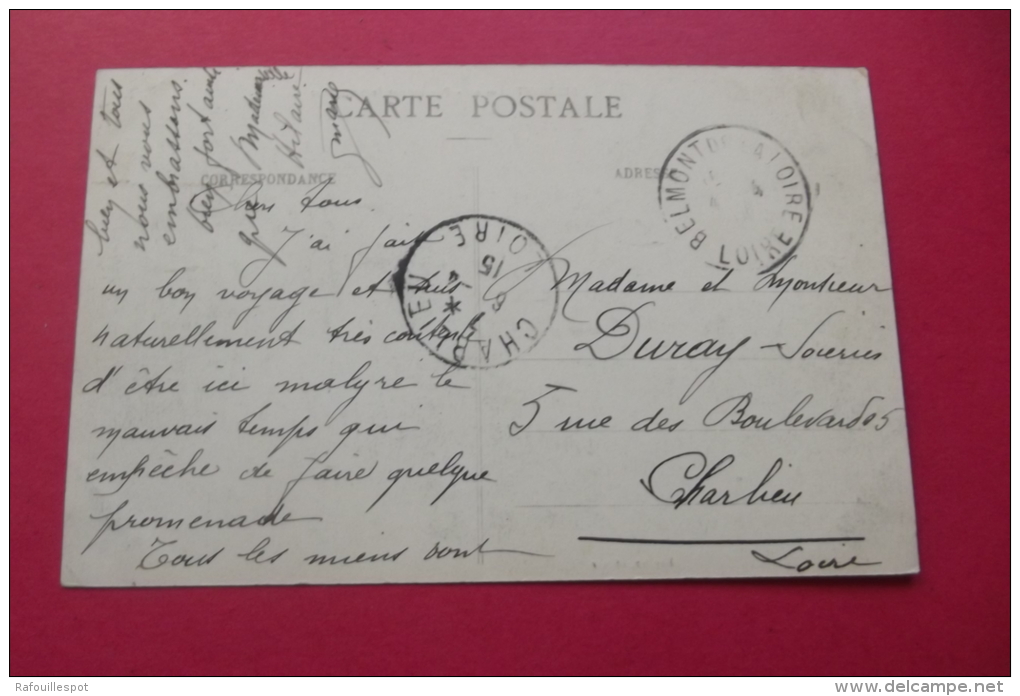 CARTE POSTALE
CORRESPONDANCE
ADRESSE
Chers Tous
J'ai fait
un bon voyage et suis
naturellement très contente
d'être ici malgre le
mauvais temps qui
empêche de faire quelque
promenade
Tous les miens vont
bien et tous
nous vous
embrassons
bien fort ainsi
que Madame
Hilaire
Marie
Madame et Monsieur
Duray - Soieries
5 rue des Boulevards
Charlieu
Loire
BELMONT DE LA LOIRE
LOIRE
CHARLIEU
LOIRE
15
8
Rafouillespot
www.delcampe.net